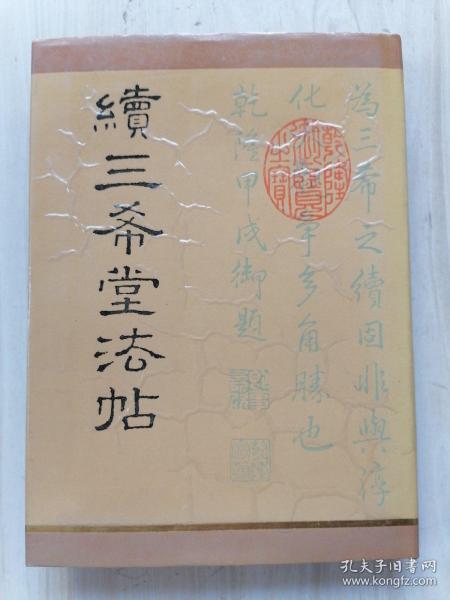 續三希堂法帖
為三希之續固非與淳
化閣譜爭多角勝也
乾隆甲戌御題
乾隆御覽之寶
孔夫子旧书网
www.kongfz.com